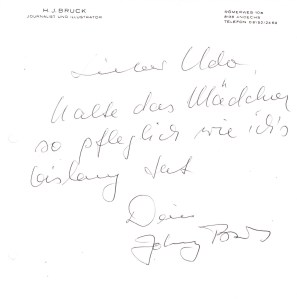 H.J. BRUCK
JOURNALIST UND ILLUSTRATOR
RÖMERWEG 10A
8138 ANDECHS
TELEFON 08152/2494
Lieber Udo,
halte das Mädchen
so pfleglich wie ich's
bislang tat
Dein
Johnny Bruck